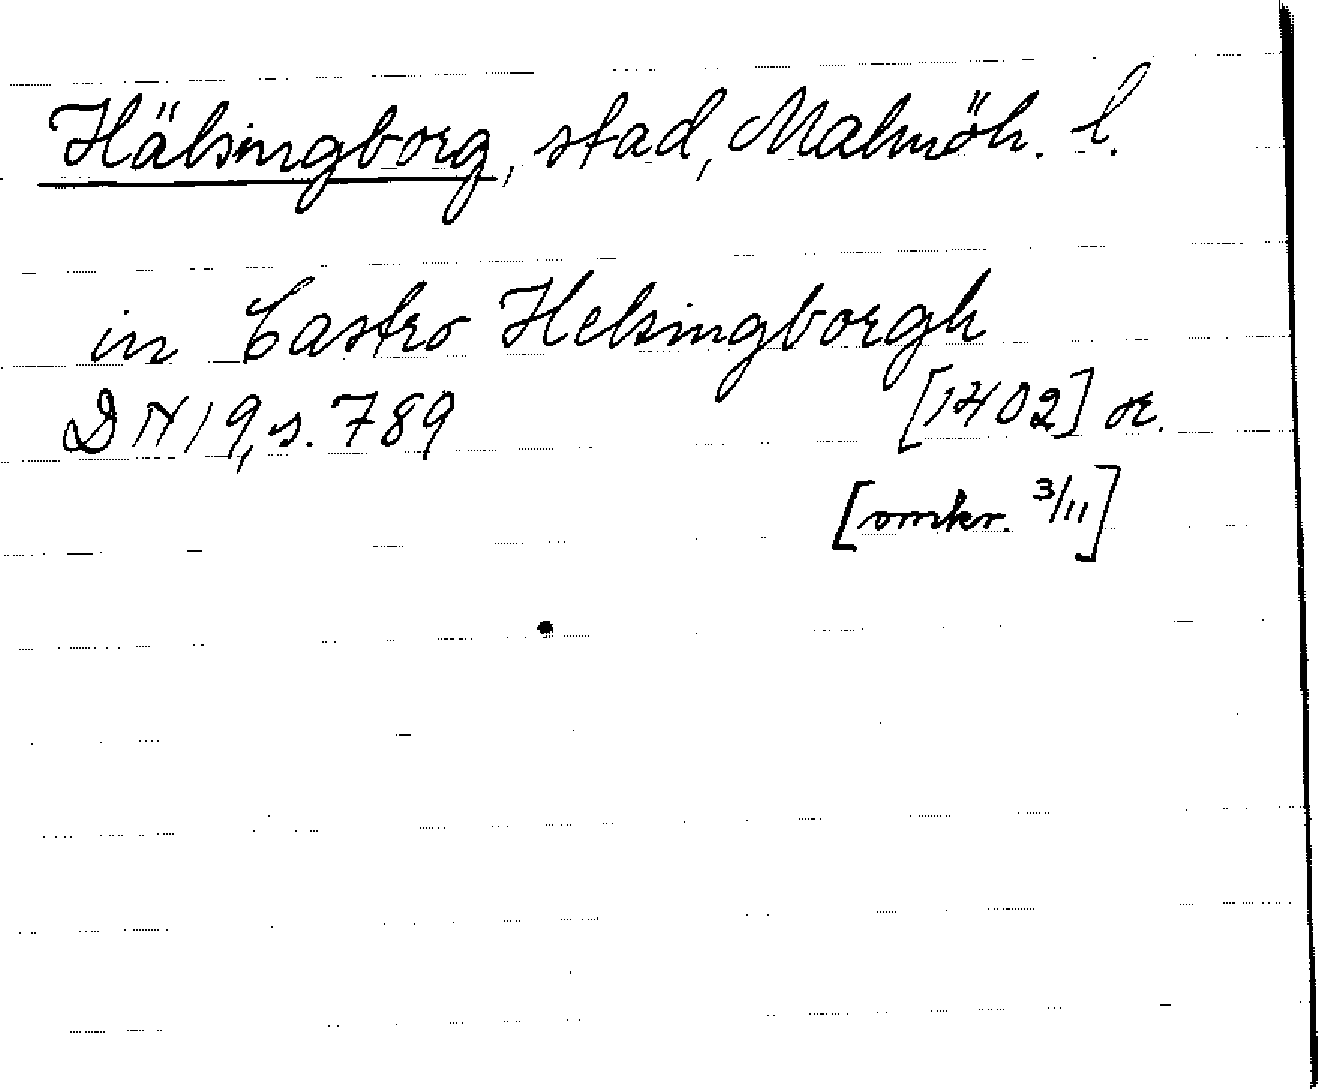 Hälsingborg, stad, Malmöh. l.
in Castro Helsingborgh
DN 19, s. 789 [1402] or.
[omkr. 3/11]